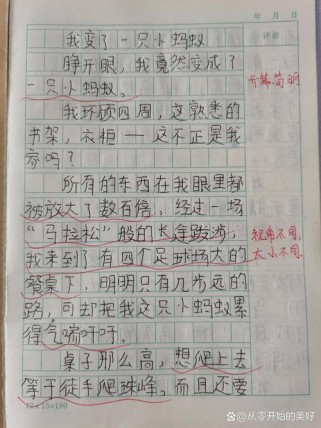 年 月 日
我变了一只小蚂蚁
评语
睁开眼，我竟然变成了
一只小蚂蚁。
开篇简明
我环顾四周，这熟悉的
书架，衣柜——这不正是我
家吗？
所有的东西在我眼里都
被放大了数百倍，经过一场
“马拉松”般的长途跋涉，
视角不同，
我来到了有四个足球场大的
大小不同。
餐桌下，明明只有几步远的
路，可却把我这只小蚂蚁累
得气喘吁吁。
桌子那么高，想爬上去
等于徒手爬珠峰。而且还要
12×15=180
@从零开始的美好